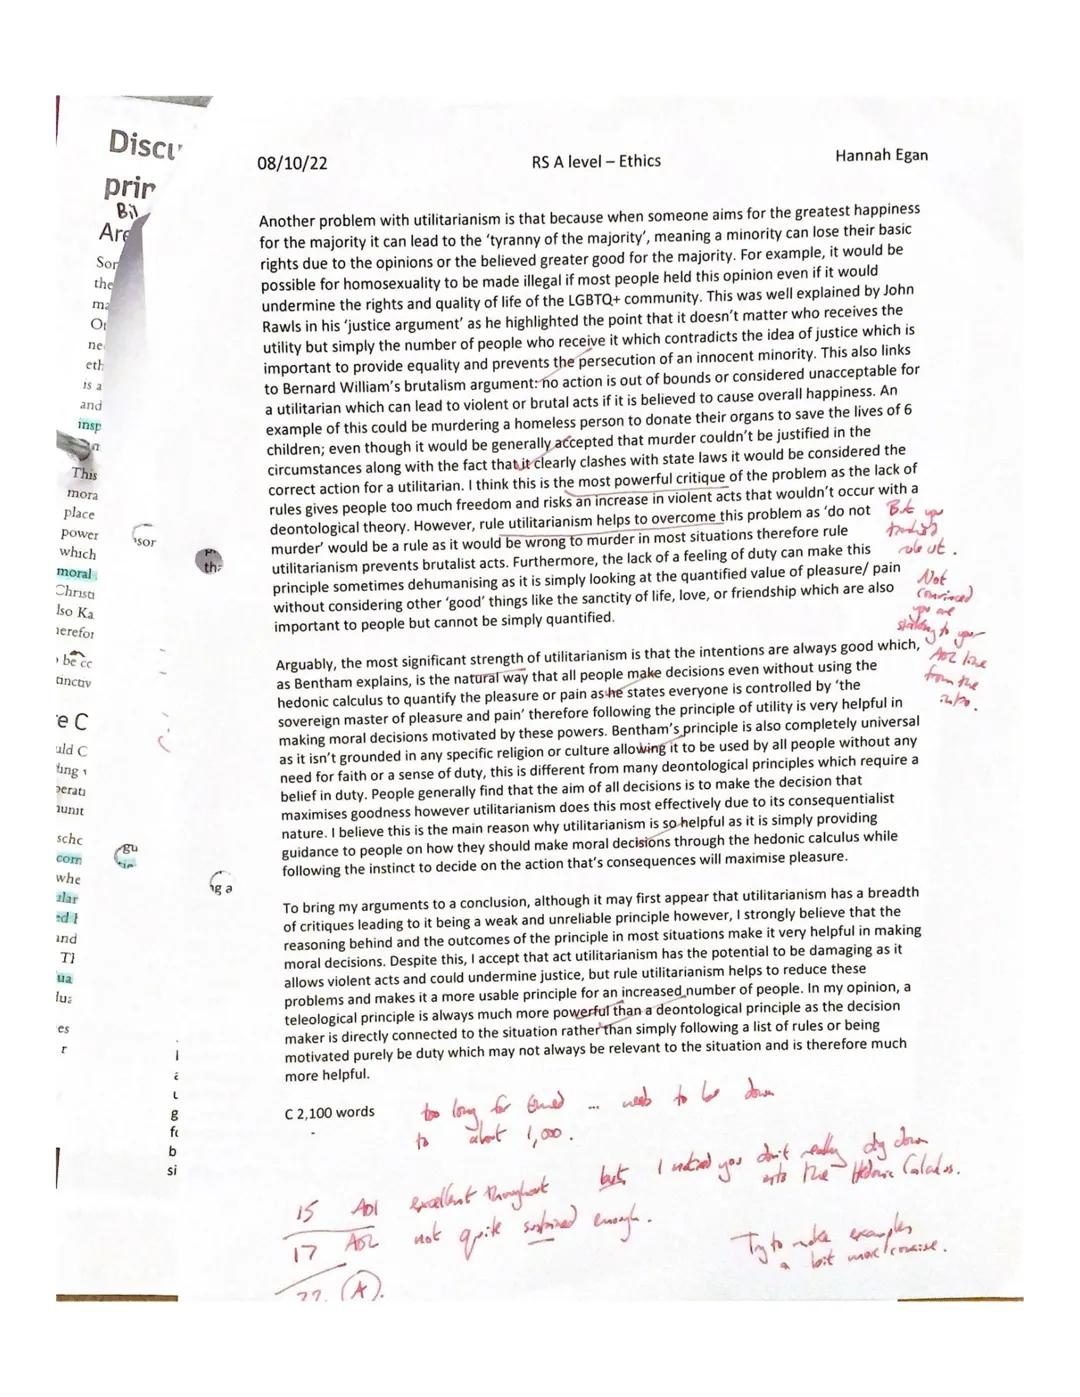 Discu
prin
Bi
Are
08/10/22
RS A level – Ethics
Hannah Egan
Another problem with utilitarianism is that because when someone aims for the greatest happiness
for the majority it can lead to the 'tyranny of the majority', meaning a minority can lose their basic
rights due to the opinions or the believed greater good for the majority. For example, it would be
possible for homosexuality to be made illegal if most people held this opinion even if it would
undermine the rights and quality of life of the LGBTQ+ community. This was well explained by John
Rawls in his 'justice argument' as he highlighted the point that it doesn't matter who receives the
utility but simply the number of people who receive it which contradicts the idea of justice which is
important to provide equality and prevents the persecution of an innocent minority. This also links
to Bernard William's brutalism argument: no action is out of bounds or considered unacceptable for
a utilitarian which can lead to violent or brutal acts if it is believed to cause overall happiness. An
example of this could be murdering a homeless person to donate their organs to save the lives of 6
children; even though it would be generally accepted that murder couldn't be justified in the
circumstances along with the fact that it clearly clashes with state laws it would be considered the
correct action for a utilitarian. I think this is the most powerful critique of the problem as the lack of
rules gives people too much freedom and risks an increase in violent acts that wouldn't occur with a
deontological theory. However, rule utilitarianism helps to overcome this problem as 'do not
murder' would be a rule as it would be wrong to murder in most situations therefore rule
utilitarianism prevents brutalist acts. Furthermore, the lack of a feeling of duty can make this
principle sometimes dehumanising as it is simply looking at the quantified value of pleasure/ pain
without considering other 'good' things like the sanctity of life, love, or friendship which are also
important to people but cannot be simply quantified.
But you
rule ut.
Not
convinced
you are
sticking to your
AO2 line
from the
intro.
Arguably, the most significant strength of utilitarianism is that the intentions are always good which,
as Bentham explains, is the natural way that all people make decisions even without using the
hedonic calculus to quantify the pleasure or pain as he states everyone is controlled by 'the
sovereign master of pleasure and pain' therefore following the principle of utility is very helpful in
making moral decisions motivated by these powers. Bentham's principle is also completely universal
as it isn't grounded in any specific religion or culture allowing it to be used by all people without any
need for faith or a sense of duty, this is different from many deontological principles which require a
belief in duty. People generally find that the aim of all decisions is to make the decision that
maximises goodness however utilitarianism does this most effectively due to its consequentialist
nature. I believe this is the main reason why utilitarianism is so helpful as it is simply providing
guidance to people on how they should make moral decisions through the hedonic calculus while
following the instinct to decide on the action that's consequences will maximise pleasure.
To bring my arguments to a conclusion, although it may first appear that utilitarianism has a breadth
of critiques leading to it being a weak and unreliable principle however, I strongly believe that the
reasoning behind and the outcomes of the principle in most situations make it very helpful in making
moral decisions. Despite this, I accept that act utilitarianism has the potential to be damaging as it
allows violent acts and could undermine justice, but rule utilitarianism helps to reduce these
problems and makes it a more usable principle for an increased number of people. In my opinion, a
teleological principle is always much more powerful than a deontological principle as the decision
maker is directly connected to the situation rather than simply following a list of rules or being
motivated purely be duty which may not always be relevant to the situation and is therefore much
more helpful.
C 2,100 words
too long for timed ... needs to be down
to about 1,000.
15 AO1 excellent throughout
17 AO2 not quite sustained enough.
(A).
but, I noticed you don't really dig down
into the Hedonic Calculus.
Try to make examples
a bit more concise.
This
mora
place
power
which
moral
Christi
lso Ka
herefor